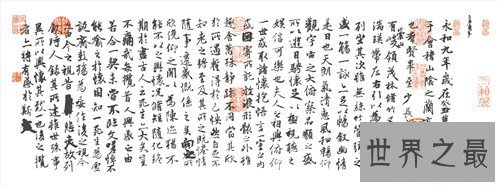 永和九年歲在癸丑
會稽山陰之蘭
羣賢畢至少長
有崇山峻領茂林脩竹
湍暎帶左右引以
列坐其次雖無絲竹
盛一觴一詠亦足以暢敘幽情
是日也天朗氣清惠風和暢仰
觀宇宙之大俯察品類之盛
所以遊目騁懷足以極視聽之
娛信可樂也夫人之相與俯仰
一世或取諸懷抱悟言一室之內
或因寄所託放浪形骸之外雖
趣舍萬殊靜躁不同當其欣
於所遇暫得於己怏然自足不
知老之將至及其所之既倦情
隨事遷感慨係之矣向之所
欣俛仰之閒以為陳迹猶不
能不以之興懷況脩短隨化終
期於盡古人云死生亦大矣豈
不痛哉每攬昔人興感之由
若合一契未嘗不臨文嗟悼不
能喻之於懷固知一死生為虛
誕齊彭殤為妄作後之視今
亦由今之視昔悲夫故列
敘時人錄其所述雖世殊事
異所以興懷其致一也後之攬
者亦將有感於斯文
世界之最